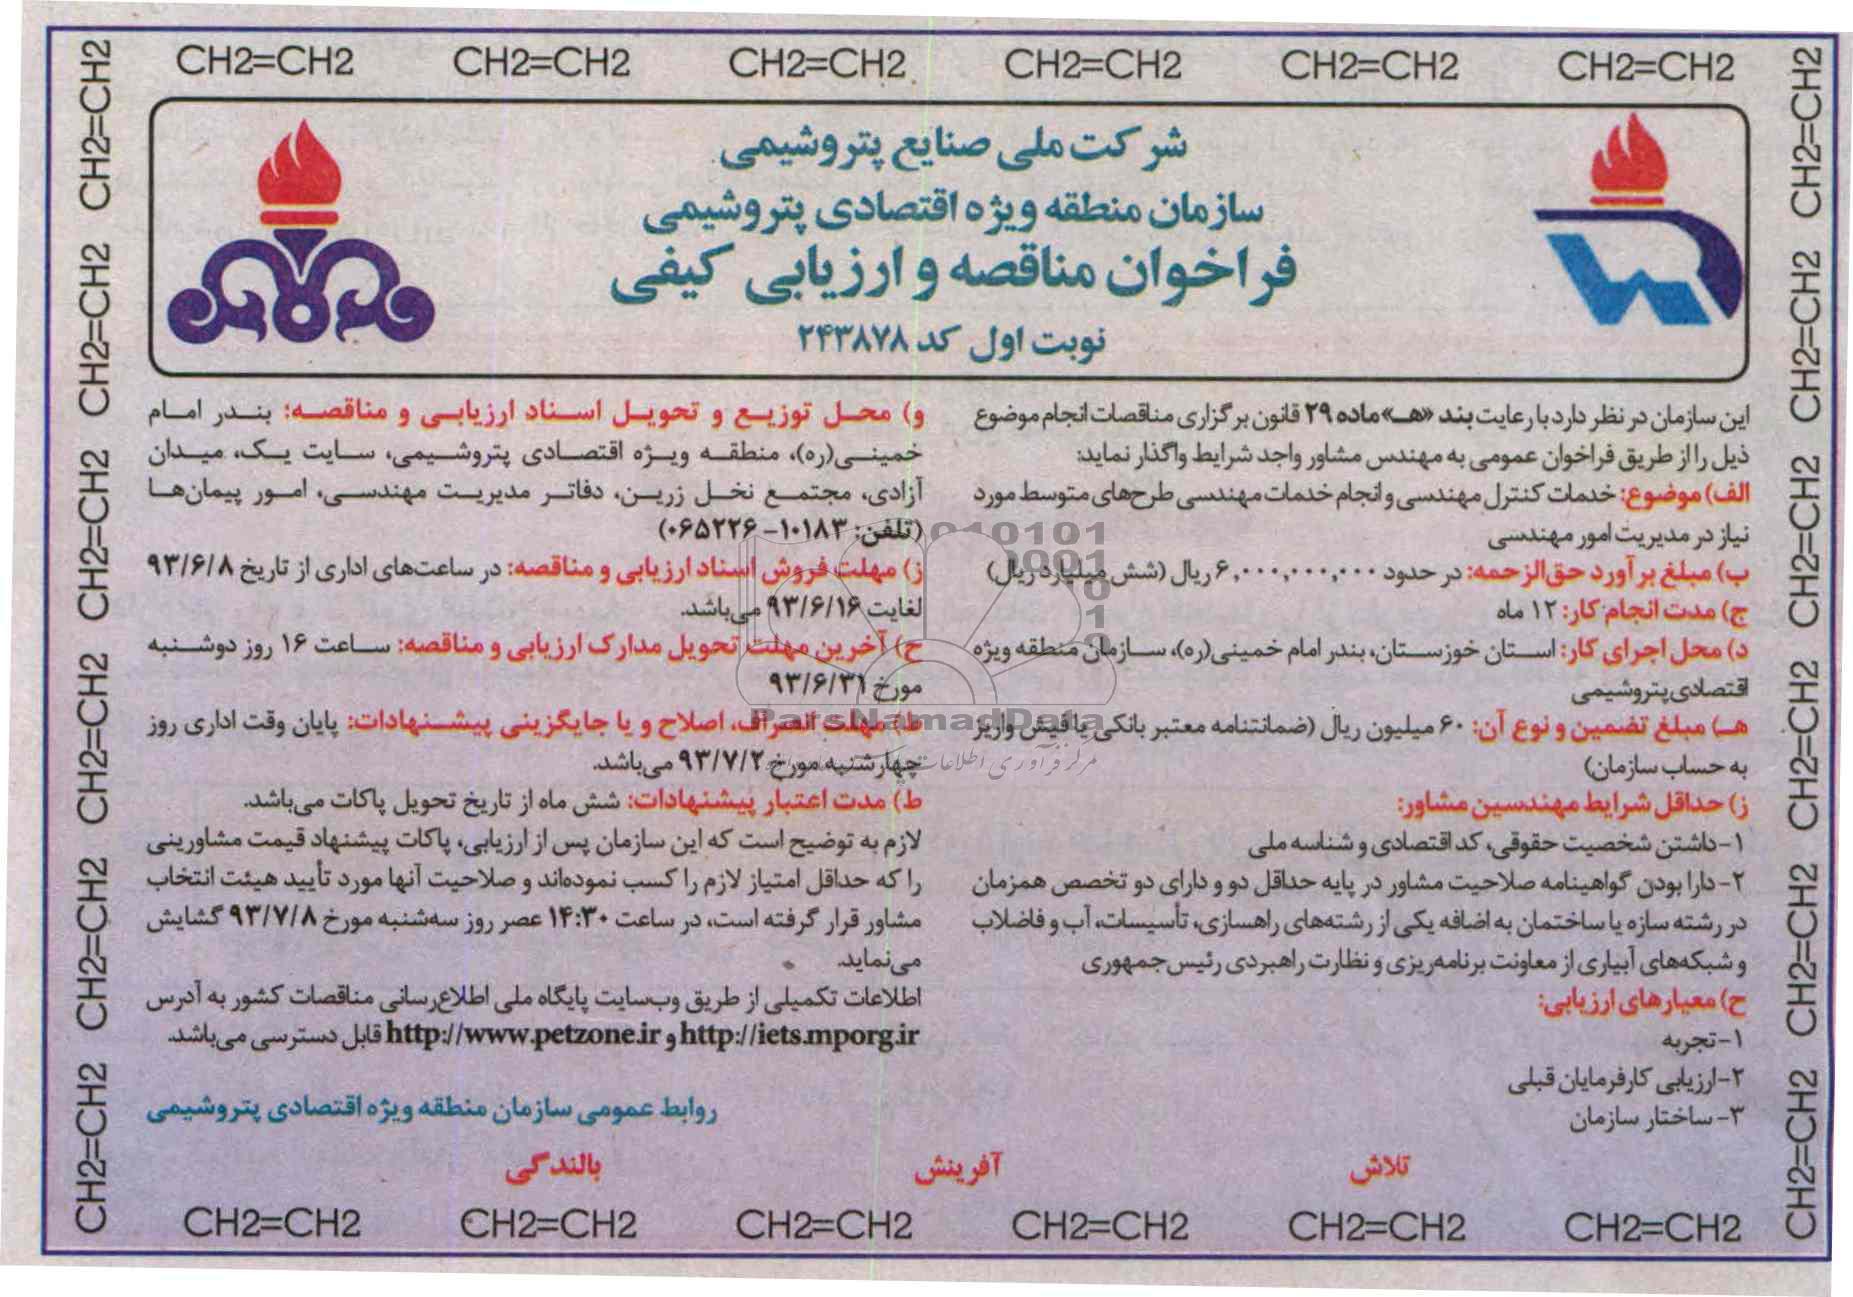 CH2=CH2 CH2=CH2 CH2=CH2 CH2=CH2 CH2=CH2 CH2=CH2
شرکت ملی صنایع پتروشیمی
سازمان منطقه ویژه اقتصادی پتروشیمی
فراخوان مناقصه و ارزیابی کیفی
نوبت اول کد ۲۴۳۸۷۸
این سازمان در نظر دارد با رعایت بند «هـ» ماده ۲۹ قانون برگزاری مناقصات انجام موضوع
ذیل را از طریق فراخوان عمومی به مهندس مشاور واجد شرایط واگذار نماید:
الف) موضوع: خدمات کنترل مهندسی و انجام خدمات مهندسی طرح‌های متوسط مورد
نیاز در مدیریت امور مهندسی
ب) مبلغ برآورد حق‌الزحمه: در حدود ۶,۰۰۰,۰۰۰,۰۰۰ ریال (شش میلیارد ریال)
ج) مدت انجام کار: ۱۲ ماه
د) محل اجرای کار: استان خوزستان، بندر امام خمینی(ره)، سازمان منطقه ویژه
اقتصادی پتروشیمی
هـ) مبلغ تضمین و نوع آن: ۶۰ میلیون ریال (ضمانتنامه معتبر بانکی یا فیش واریز
به حساب سازمان)
ز) حداقل شرایط مهندسین مشاور:
۱- داشتن شخصیت حقوقی، کد اقتصادی و شناسه ملی
۲- دارا بودن گواهینامه صلاحیت مشاور در پایه حداقل دو و دارای دو تخصص همزمان
در رشته سازه یا ساختمان به اضافه یکی از رشته‌های راهسازی، تأسیسات، آب و فاضلاب
و شبکه‌های آبیاری از معاونت برنامه‌ریزی و نظارت راهبردی رئیس‌جمهوری
ح) معیارهای ارزیابی:
۱- تجربه
۲- ارزیابی کارفرمایان قبلی
۳- ساختار سازمان
و) محل توزیع و تحویل اسناد ارزیابی و مناقصه: بندر امام
خمینی(ره)، منطقه ویژه اقتصادی پتروشیمی، سایت یک، میدان
آزادی، مجتمع نخل زرین، دفاتر مدیریت مهندسی، امور پیمان‌ها
(تلفن: ۱۰۱۸۳- ۰۶۵۲۲۶)
ز) مهلت فروش اسناد ارزیابی و مناقصه: در ساعت‌های اداری از تاریخ ۹۳/۶/۸
لغایت ۹۳/۶/۱۶ می‌باشد.
ح) آخرین مهلت تحویل مدارک ارزیابی و مناقصه: ساعت ۱۶ روز دوشنبه
مورخ ۹۳/۶/۳۱
ط) مهلت انصراف، اصلاح و یا جایگزینی پیشنهادات: پایان وقت اداری روز
چهارشنبه مورخ ۹۳/۷/۲ می‌باشد.
ط) مدت اعتبار پیشنهادات: شش ماه از تاریخ تحویل پاکات می‌باشد.
لازم به توضیح است که این سازمان پس از ارزیابی، پاکات پیشنهاد قیمت مشاورینی
را که حداقل امتیاز لازم را کسب نموده‌اند و صلاحیت آنها مورد تأیید هیئت انتخاب
مشاور قرار گرفته است، در ساعت ۱۴:۳۰ عصر روز سه‌شنبه مورخ ۹۳/۷/۸ گشایش
می‌نماید.
اطلاعات تکمیلی از طریق وب‌سایت پایگاه ملی اطلاع‌رسانی مناقصات کشور به آدرس
http://iets.mporg.ir و http://www.petzone.ir قابل دسترسی می‌باشد.
روابط عمومی سازمان منطقه ویژه اقتصادی پتروشیمی
تلاش آفرینش بالندگی
CH2=CH2 CH2=CH2 CH2=CH2 CH2=CH2 CH2=CH2 CH2=CH2
CH2=CH2 CH2=CH2 CH2=CH2 CH2=CH2 CH2=CH2 CH2=CH2
CH2=CH2 CH2=CH2 CH2=CH2 CH2=CH2 CH2=CH2 CH2=CH2
ParsNamadData